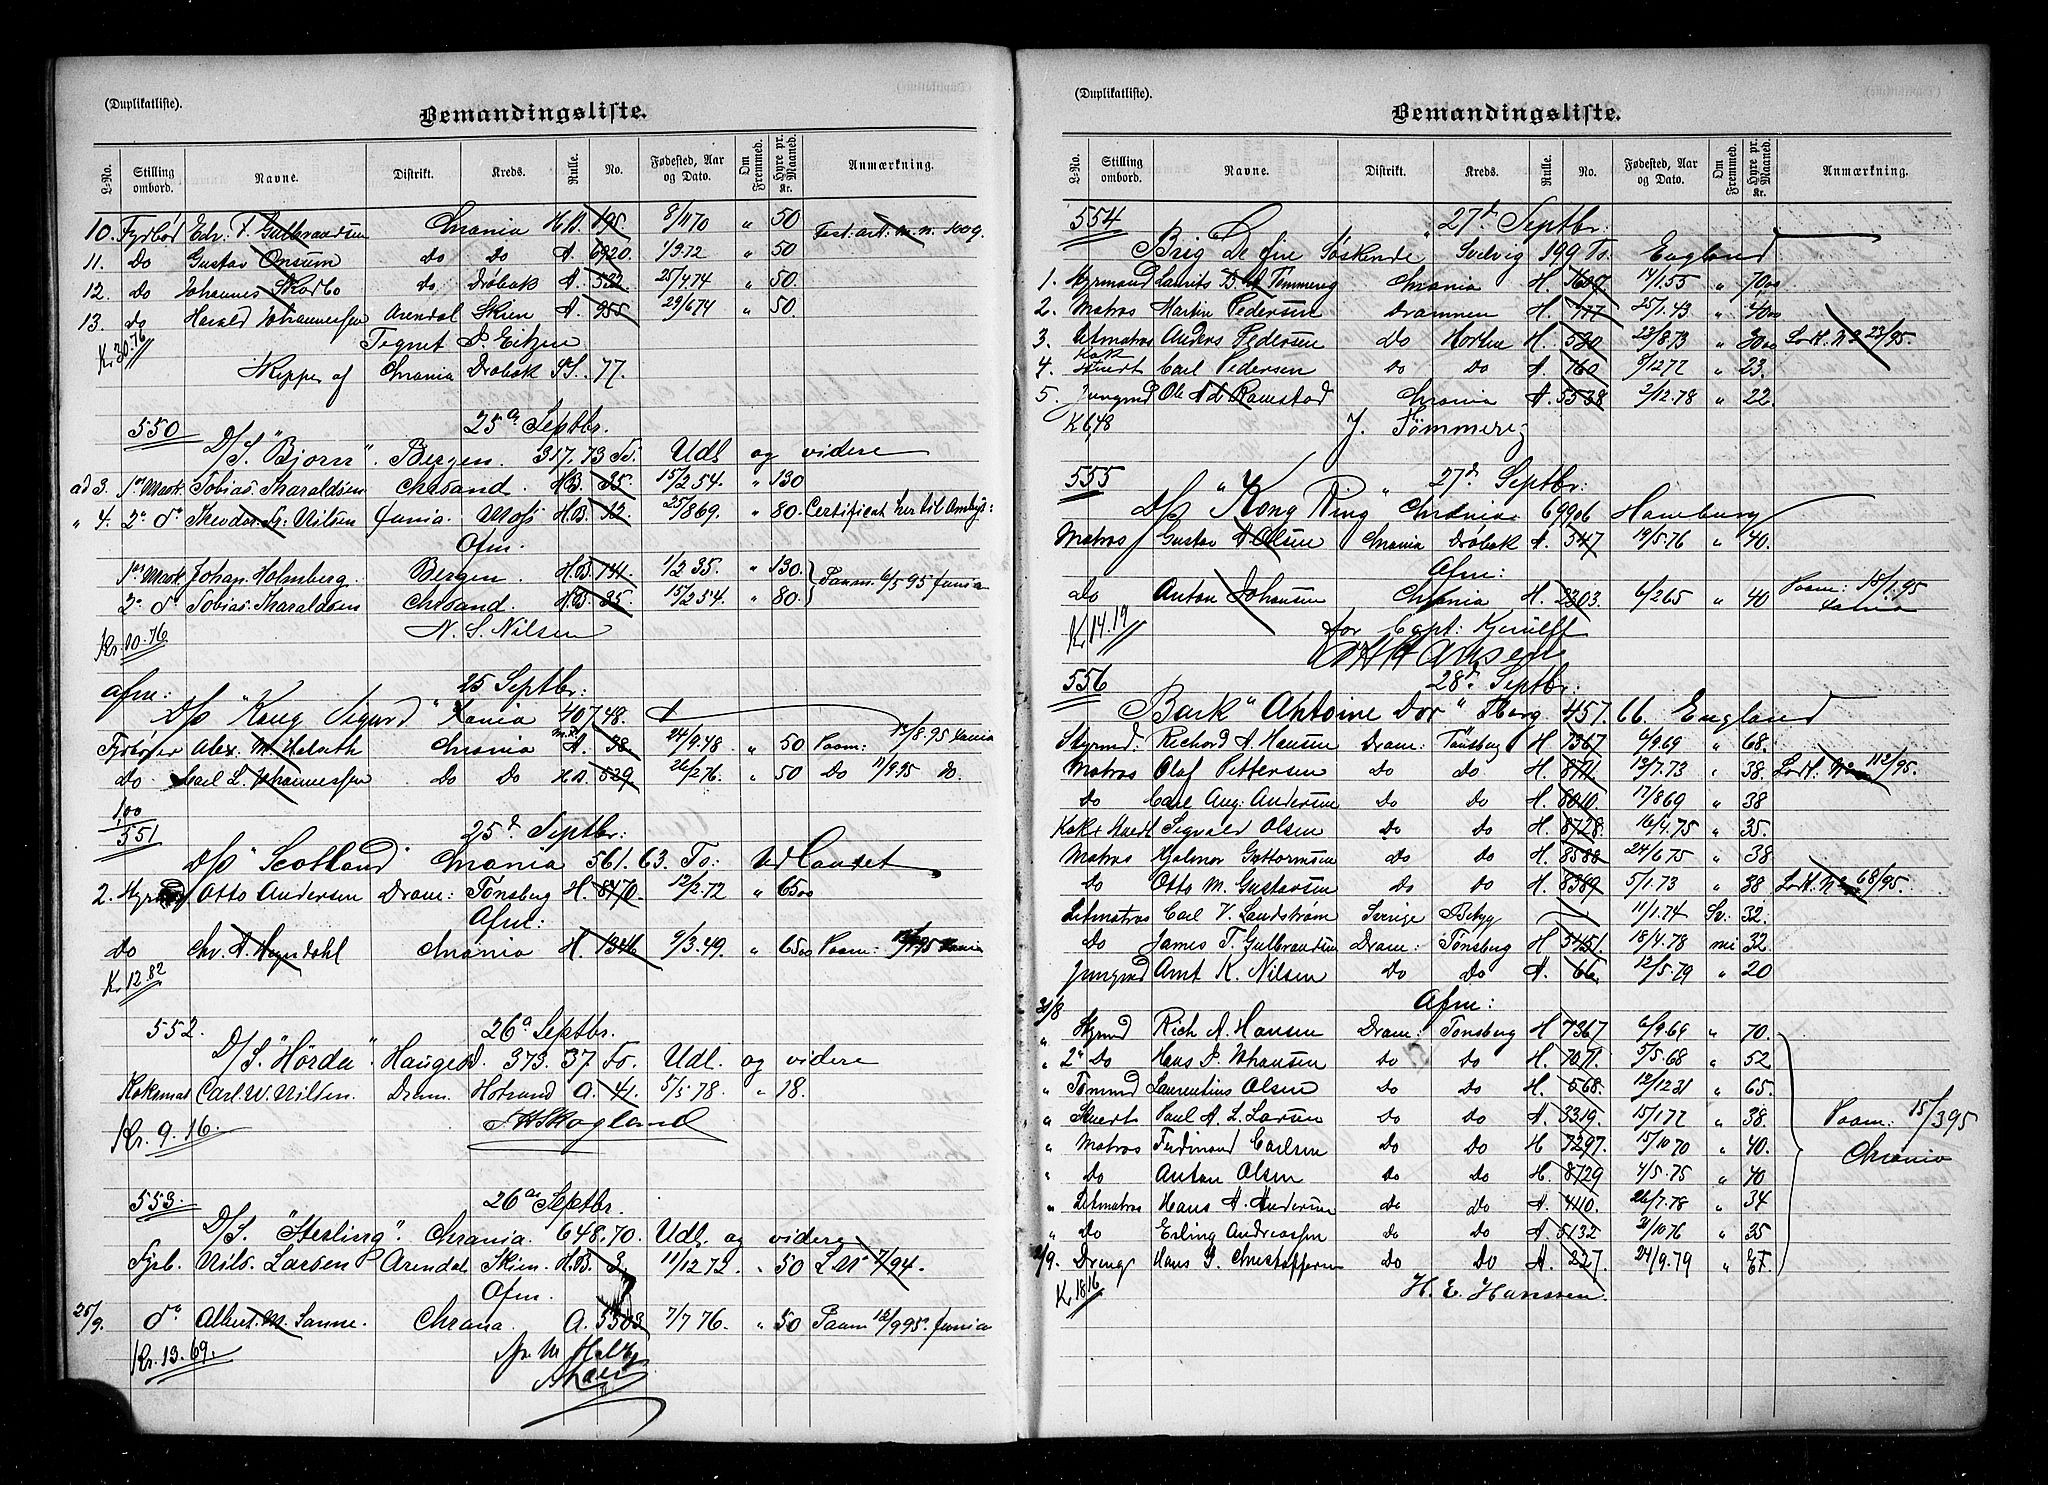 (Duplikatliste).
Bemandingsliste.
L-No. Stilling ombord. Navne. Distrikt. Kreds. Rulle. No. Fødested, Aar og Dato. Om Fremmed. Hyre pr. Maaned. Kr. Anmærkning.
10. Fyrbød Edv. T. Gulbrandsen Chrania H.A. 195. 8/11 70 " 50
11. Do Gustav Onsum do Do A. 6920. 1/9.72 " 50
12. do Johannes Skarbo do Drøbak A. 522. 25/4.74 " 50.
13. do Harald Johannessen Arendal Skien A. 955 29/6 74 " 50.
Kr. 30.76 Tegnet P. Eitzen
Skipper af Chrania Drøbak S.S. 77.
550 25de Septbr.
D/S. "Bjorn". Bergen. 317.73 To. Udl og videre
ad 3. 1ste Mask. Tobias Tharaldsen Chrsand. H.B. 35. 15/2 54. " 130
" 4. 2n do Theodor Nilsen Xania. Moss H.B. 12. 25/8 69. " 80.
Afm.
1ste Mask Johan Holmberg. Bergen. H.B. 131. 1/2 35. " 130. Paam. 6/5 95 Xania
2n do Tobias Tharaldsen Chrsand. H.B. 35. 15/2 54. " 80.
Kr. 10.76 N. S. Nilsen
Afm: 25 Septbr:
D/S "Kong Sigurd" Xania 407.48.
Fyrbøder Alex. M. Chrania A. 38. 24/9.48 " 50 Paam: 13/8.95 Xania
do Carl L. Johannessen Do Do H.A. 829 26/2 76. " 50 Do 11/9.95 do.
1,00
551 25de Septbr:
D/S "Scotland" Chrania 561.63. To: Udlandet
2. Styrmd Otto Andersen Dram: Tønsberg H. 8470. 12/2.72 " 65 00
Afm:
Do Chr. A. Chrania H. 1346 9/3.49. " 65 00 Paam:
Kr 12.82
552. 26de Septbr.
D/S. "Hörda". Haugesd. 373.37. To. Udl. og videre
Koksmat Carl. W. Nilsen. Dram. A. 41. 5/5 78. " 18.
Kr. 9.16. Skogland
553. 26de Septbr.
D/S. "Sterling". Chrania. 648.70. Udl. og videre
Fyrb. Nils. Larsen Arendal Skien. H.B. 3 11/12 72. " 50 L.No 7/94.
Afm.
25/9. do Albert. M. Sanne. Chrania. A. 5503 7/7 76. " 50 Paam 16/9 95. Xania
Kr. 13.69.
(Duplikatliste).
Bemandingsliste.
L-No. Stilling ombord. Navne. Distrikt. Kreds. Rulle. No. Fødested, Aar og Dato. Om Fremmed. Hyre pr. Maaned. Kr. Anmærkning.
554 27de Septbr:
Brig De fire Søskende Svelvig 199 To. England
1. Styrmand Laurits Tømmereg Chrania H. 1607 14/1.55 " 70 00
2. Matros Martin Pedersen Drammen H. 777 25/1.43 " 40 00
3. Letmatros Anders Pedersen do Horten H. 580 23/8.73 " 30 00 23/95.
4. Kok Stuert Carl Pedersen do do A. 760 9/12 77 " 23.
5. Jungmd Ole Ramstad Chrania A. 5538 2/12.78 " 22.
K 6,48 J. Tømmereg
555 27de Septbr:
D/S "Kong Ring" Chrania 699 06 Hamburg
Matros Gustav A Olsen Chrania Drøbak A. 547 14/5.76 " 40.
Afm:
do Anton Johansen Chrania H. 2303. 6/2 65 " 40 Paam: 15/1.95 Xania
Kr 14.19 for Capt: Kjerulff
556 28de Septbr.
Bark "Antoine Dor" Tbrg 457.66. England
Styrmd: Richard A. Hansen Dram: Tønsberg H 7367 6/9.69 " 68.
Matros Olaf Pettersen Do do H. 8711. 13/7.73 " 38. 112/95.
do Carl Aug: Andersen do Do H. 8010. 17/8 69 " 38
Kok & Stuert Sigvald Olsen Do Do H. 8728. 16/4.75 " 35.
Matros Hjalmar Guttormsen do Do H. 8588 24/6 75 " 38
do Otto M. Gustavsen do do H. 8389 5/1.73 " 38 68/95.
Letmatros Carl V. Landstrøm Sverige 11/1.74 Sv. 32.
Do James T. Gulbrandsen Dram: Tønsberg H 5451 18/4.78 32
Jungmd Arnt K. Nilsen Do do A. 66. 12/5.79 " 20
Afm:
31/8 Styrmd Rich A. Hansen Dram: Tønsberg H 7367 6/9.69 " 70.
" 2n Do Hans P. Johansen do do H. 7071. 5/5.68 " 52
" Tømmd Laurentius Olsen do Do H. 568. 12/12 31 " 65.
" Stuert Paul A. L. Larsen do do A. 3319. 15/1 77 " 38. Paam: 15/3 95
" Matros Ferdinand Carlsen do Do H 7297. 15/10 70 " 40. Chrania
" Do Anton Olsen do Do H. 8729 4/5.75 " 40
" Letmatros Hans A. Andersen do Do A. 4110. 26/7.78 " 34
" Do Erling Andreassen do Do A 5132 21/10 76 " 35
Dreng Hans J. Christoffersen do Do A. 227. 24/9.79 "
K. 18.16 H. E. Hanssen.